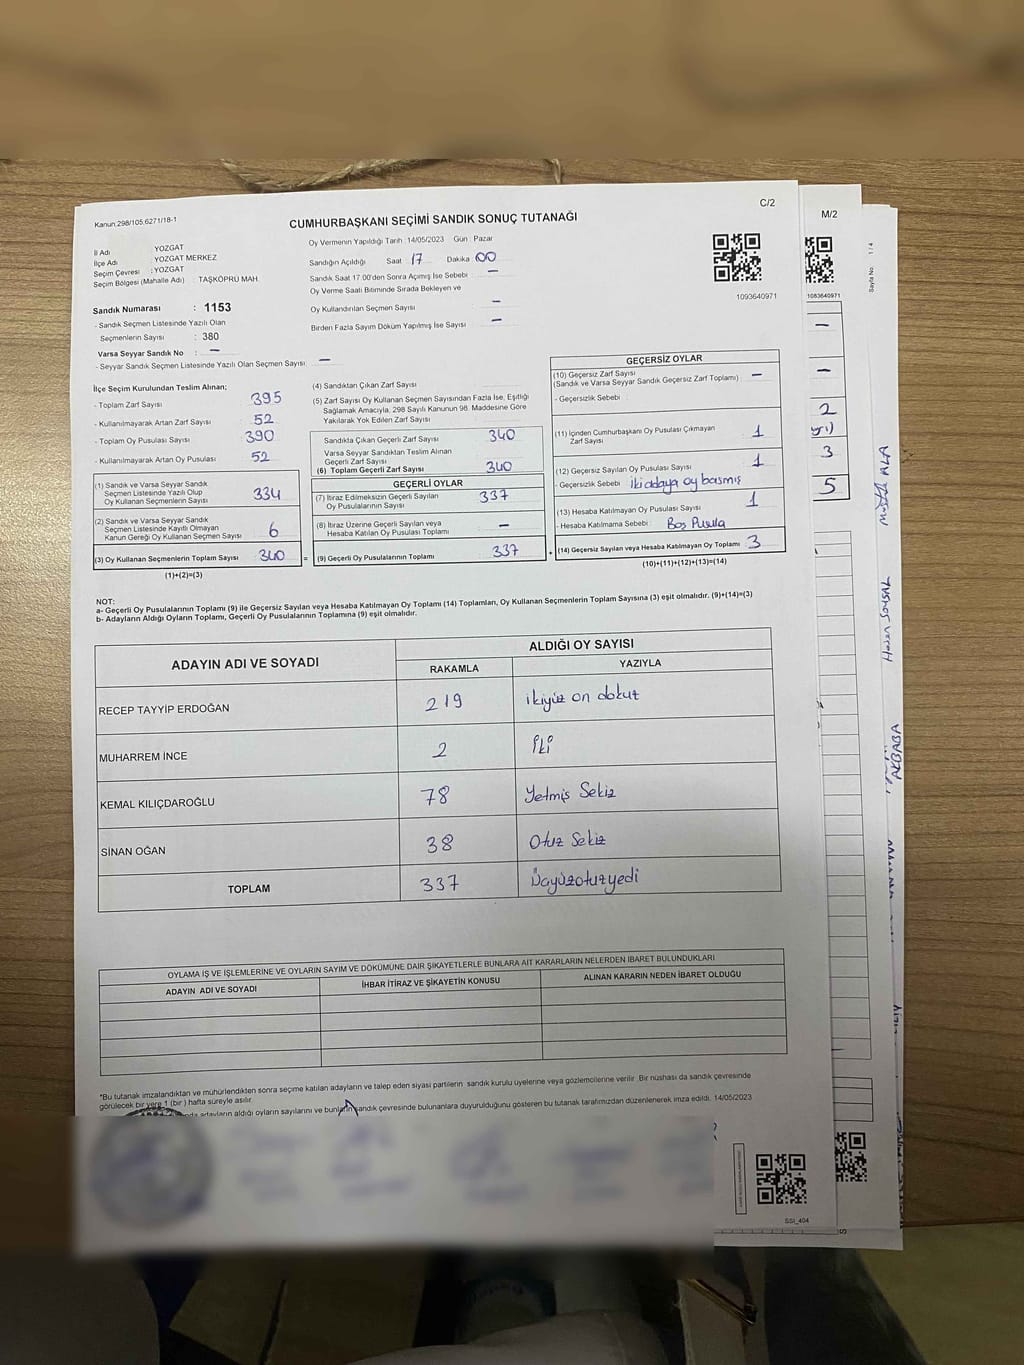 Kanun:298/105;6271/18-1
C/2
M/2
CUMHURBAŞKANI SEÇİMİ SANDIK SONUÇ TUTANAĞI
İl Adı YOZGAT
İlçe Adı YOZGAT MERKEZ
Seçim Çevresi : YOZGAT
Seçim Bölgesi (Mahalle Adı) : TAŞKÖPRÜ MAH.
Sandık Numarası : 1153
- Sandık Seçmen Listesinde Yazılı Olan
Seçmenlerin Sayısı : 380
Varsa Seyyar Sandık No : —
- Seyyar Sandık Seçmen Listesinde Yazılı Olan Seçmen Sayısı: —
Oy Vermenin Yapıldığı Tarih :14/05/2023 Gün : Pazar
Sandığın Açıldığı Saat 17 Dakika 00
Sandık Saat 17:00'den Sonra Açımış İse Sebebi —
Oy Verme Saati Bitiminde Sırada Bekleyen ve
Oy Kullandırılan Seçmen Sayısı —
Birden Fazla Sayım Döküm Yapılmış İse Sayısı —
1093640971
1083640971
Sayfa No. 1 / 4
İlçe Seçim Kurulundan Teslim Alınan;
- Toplam Zarf Sayısı 395
- Kullanılmayarak Artan Zarf Sayısı 52
- Toplam Oy Pusulası Sayısı 390
- Kullanılmayarak Artan Oy Pusulası 52
(1) Sandık ve Varsa Seyyar Sandık
Seçmen Listesinde Yazılı Olup
Oy Kullanan Seçmenlerin Sayısı 334
(2) Sandık ve Varsa Seyyar Sandık
Seçmen Listesinde Kayıtlı Olmayan
Kanun Gereği Oy Kullanan Seçmen Sayısı 6
(3) Oy Kullanan Seçmenlerin Toplam Sayısı 340
(1)+(2)=(3)
(4) Sandıktan Çıkan Zarf Sayısı
(5) Zarf Sayısı Oy Kullanan Seçmen Sayısından Fazla İse, Eşitliği
Sağlamak Amacıyla, 298 Sayılı Kanunun 98. Maddesine Göre
Yakılarak Yok Edilen Zarf Sayısı
Sandıkta Çıkan Geçerli Zarf Sayısı 340
Varsa Seyyar Sandıktan Teslim Alınan
Geçerli Zarf Sayısı
(6) Toplam Geçerli Zarf Sayısı 340
GEÇERLİ OYLAR
(7) İtiraz Edilmeksizin Geçerli Sayılan
Oy Pusulalarının Sayısı 337
(8) İtiraz Üzerine Geçerli Sayılan veya
Hesaba Katılan Oy Pusulası Toplamı —
= (9) Geçerli Oy Pusulalarının Toplamı 337
GEÇERSİZ OYLAR
(10) Geçersiz Zarf Sayısı
(Sandık ve Varsa Seyyar Sandık Geçersiz Zarf Toplamı) —
- Geçersizlik Sebebi
(11) İçinden Cumhurbaşkanı Oy Pusulası Çıkmayan
Zarf Sayısı 1
(12) Geçersiz Sayılan Oy Pusulası Sayısı 1
- Geçersizlik Sebebi : iki adaya oy basmış
(13) Hesaba Katılmayan Oy Pusulası Sayısı 1
- Hesaba Katılmama Sebebi : Boş Pusula
+ (14) Geçersiz Sayılan veya Hesaba Katılmayan Oy Toplamı 3
(10)+(11)+(12)+(13)=(14)
NOT:
a- Geçerli Oy Pusulalarının Toplamı (9) ile Geçersiz Sayılan veya Hesaba Katılmayan Oy Toplamı (14) Toplamları, Oy Kullanan Seçmenlerin Toplam Sayısına (3) eşit olmalıdır. (9)+(14)=(3)
b- Adayların Aldığı Oyların Toplamı, Geçerli Oy Pusulalarının Toplamına (9) eşit olmalıdır.
ADAYIN ADI VE SOYADI ALDIĞI OY SAYISI
RAKAMLA YAZIYLA
RECEP TAYYİP ERDOĞAN 219 ikiyüz on dokuz
MUHARREM İNCE 2 İki
KEMAL KILIÇDAROĞLU 78 Yetmiş Sekiz
SİNAN OĞAN 38 Otuz Sekiz
TOPLAM 337 Üçyüzotuzyedi
OYLAMA İŞ VE İŞLEMLERİNE VE OYLARIN SAYIM VE DÖKÜMÜNE DAİR ŞİKAYETLERLE BUNLARA AİT KARARLARIN NELERDEN İBARET BULUNDUKLARI
ADAYIN ADI VE SOYADI İHBAR İTİRAZ VE ŞİKAYETİN KONUSU ALINAN KARARIN NEDEN İBARET OLDUĞU
*Bu tutanak imzalandıktan ve mühürlendikten sonra seçime katılan adayların ve talep eden siyasi partilerin sandık kurulu üyelerine veya gözlemcilerine verilir. Bir nüshası da sandık çevresinde
görülecek bir yere 1 (bir) hafta süreyle asılır.
adayların aldığı oyların sayılarını ve bunların sandık çevresinde bulunanlara duyurulduğunu gösteren bu tutanak tarafımızdan düzenlenerek imza edildi. 14/05/2023
SSİ_404
—
—
2
3
5
Hasan SOYSAL
AKBABA